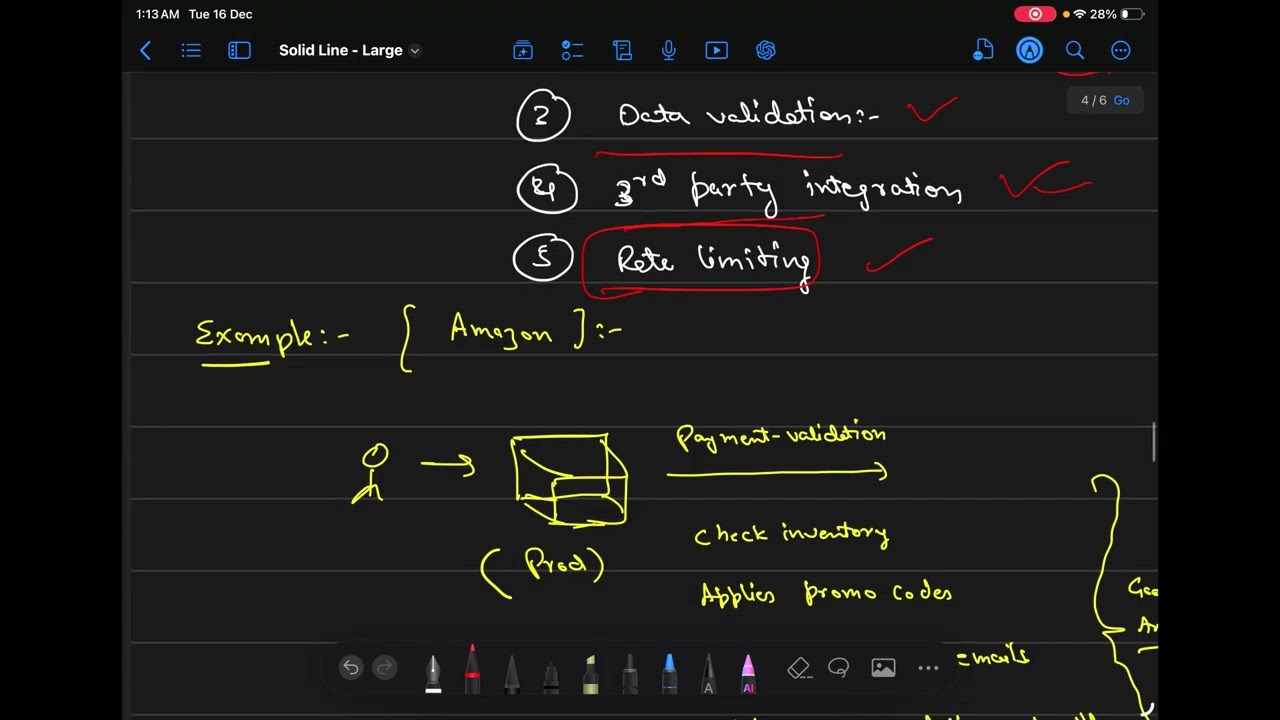 1:13 AM Tue 16 Dec 28%
Solid Line - Large
4 / 6 Go
3 Data validation:-
4 3rd party integration
5 Rate limiting
Example:- [ Amazon ] :-
Payment-validation
Check inventory
(Prod)
Applies promo codes
emails
A
AI